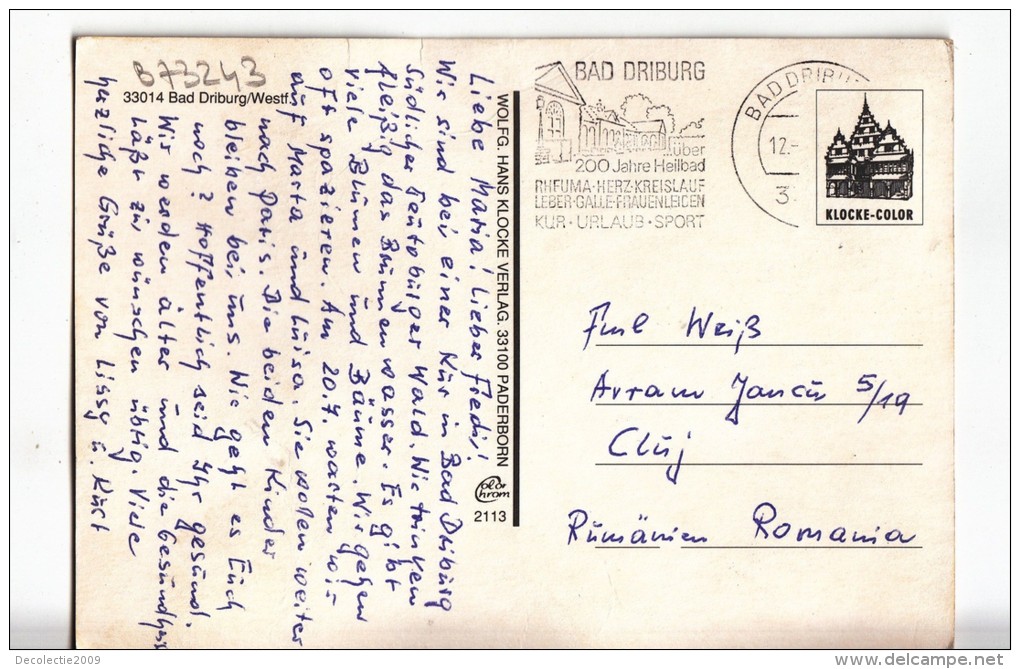 B73243
33014 Bad Driburg/Westf.
Liebe Maria! Lieber Fredi!
Wir sind bei einer Kur in Bad Driburg
südlicher Teutoburger Wald. Wir trinken
fleißig das Brunnenwasser. Es gibt
viele Blumen und Bäume. Wir gehen
oft spazieren. Am 20.7. warten wir
auf Marta und Luisa. Sie wollen weiter
nach Paris. Die beiden Kinder
bleiben bei uns. Wie geht es Euch
noch? Hoffentlich seid Ihr gesund.
Wir werden älter und die Gesundheit
läßt zu wünschen übrig. Viele
herzliche Grüße von Lissy u. Kurt
WOLFG. HANS KLOCKE VERLAG. 33100 PADERBORN
Color Chrom
2113
BAD DRIBURG
über
200 Jahre Heilbad
RHEUMA·HERZ·KREISLAUF
LEBER·GALLE·FRAUENLEIDEN
KUR·URLAUB·SPORT
BAD DRIBU
12.-
3
KLOCKE-COLOR
Weiß
Avram Jancu 5/19
Cluj
Rumänien Romania
Decolectie2009
www.delcampe.net